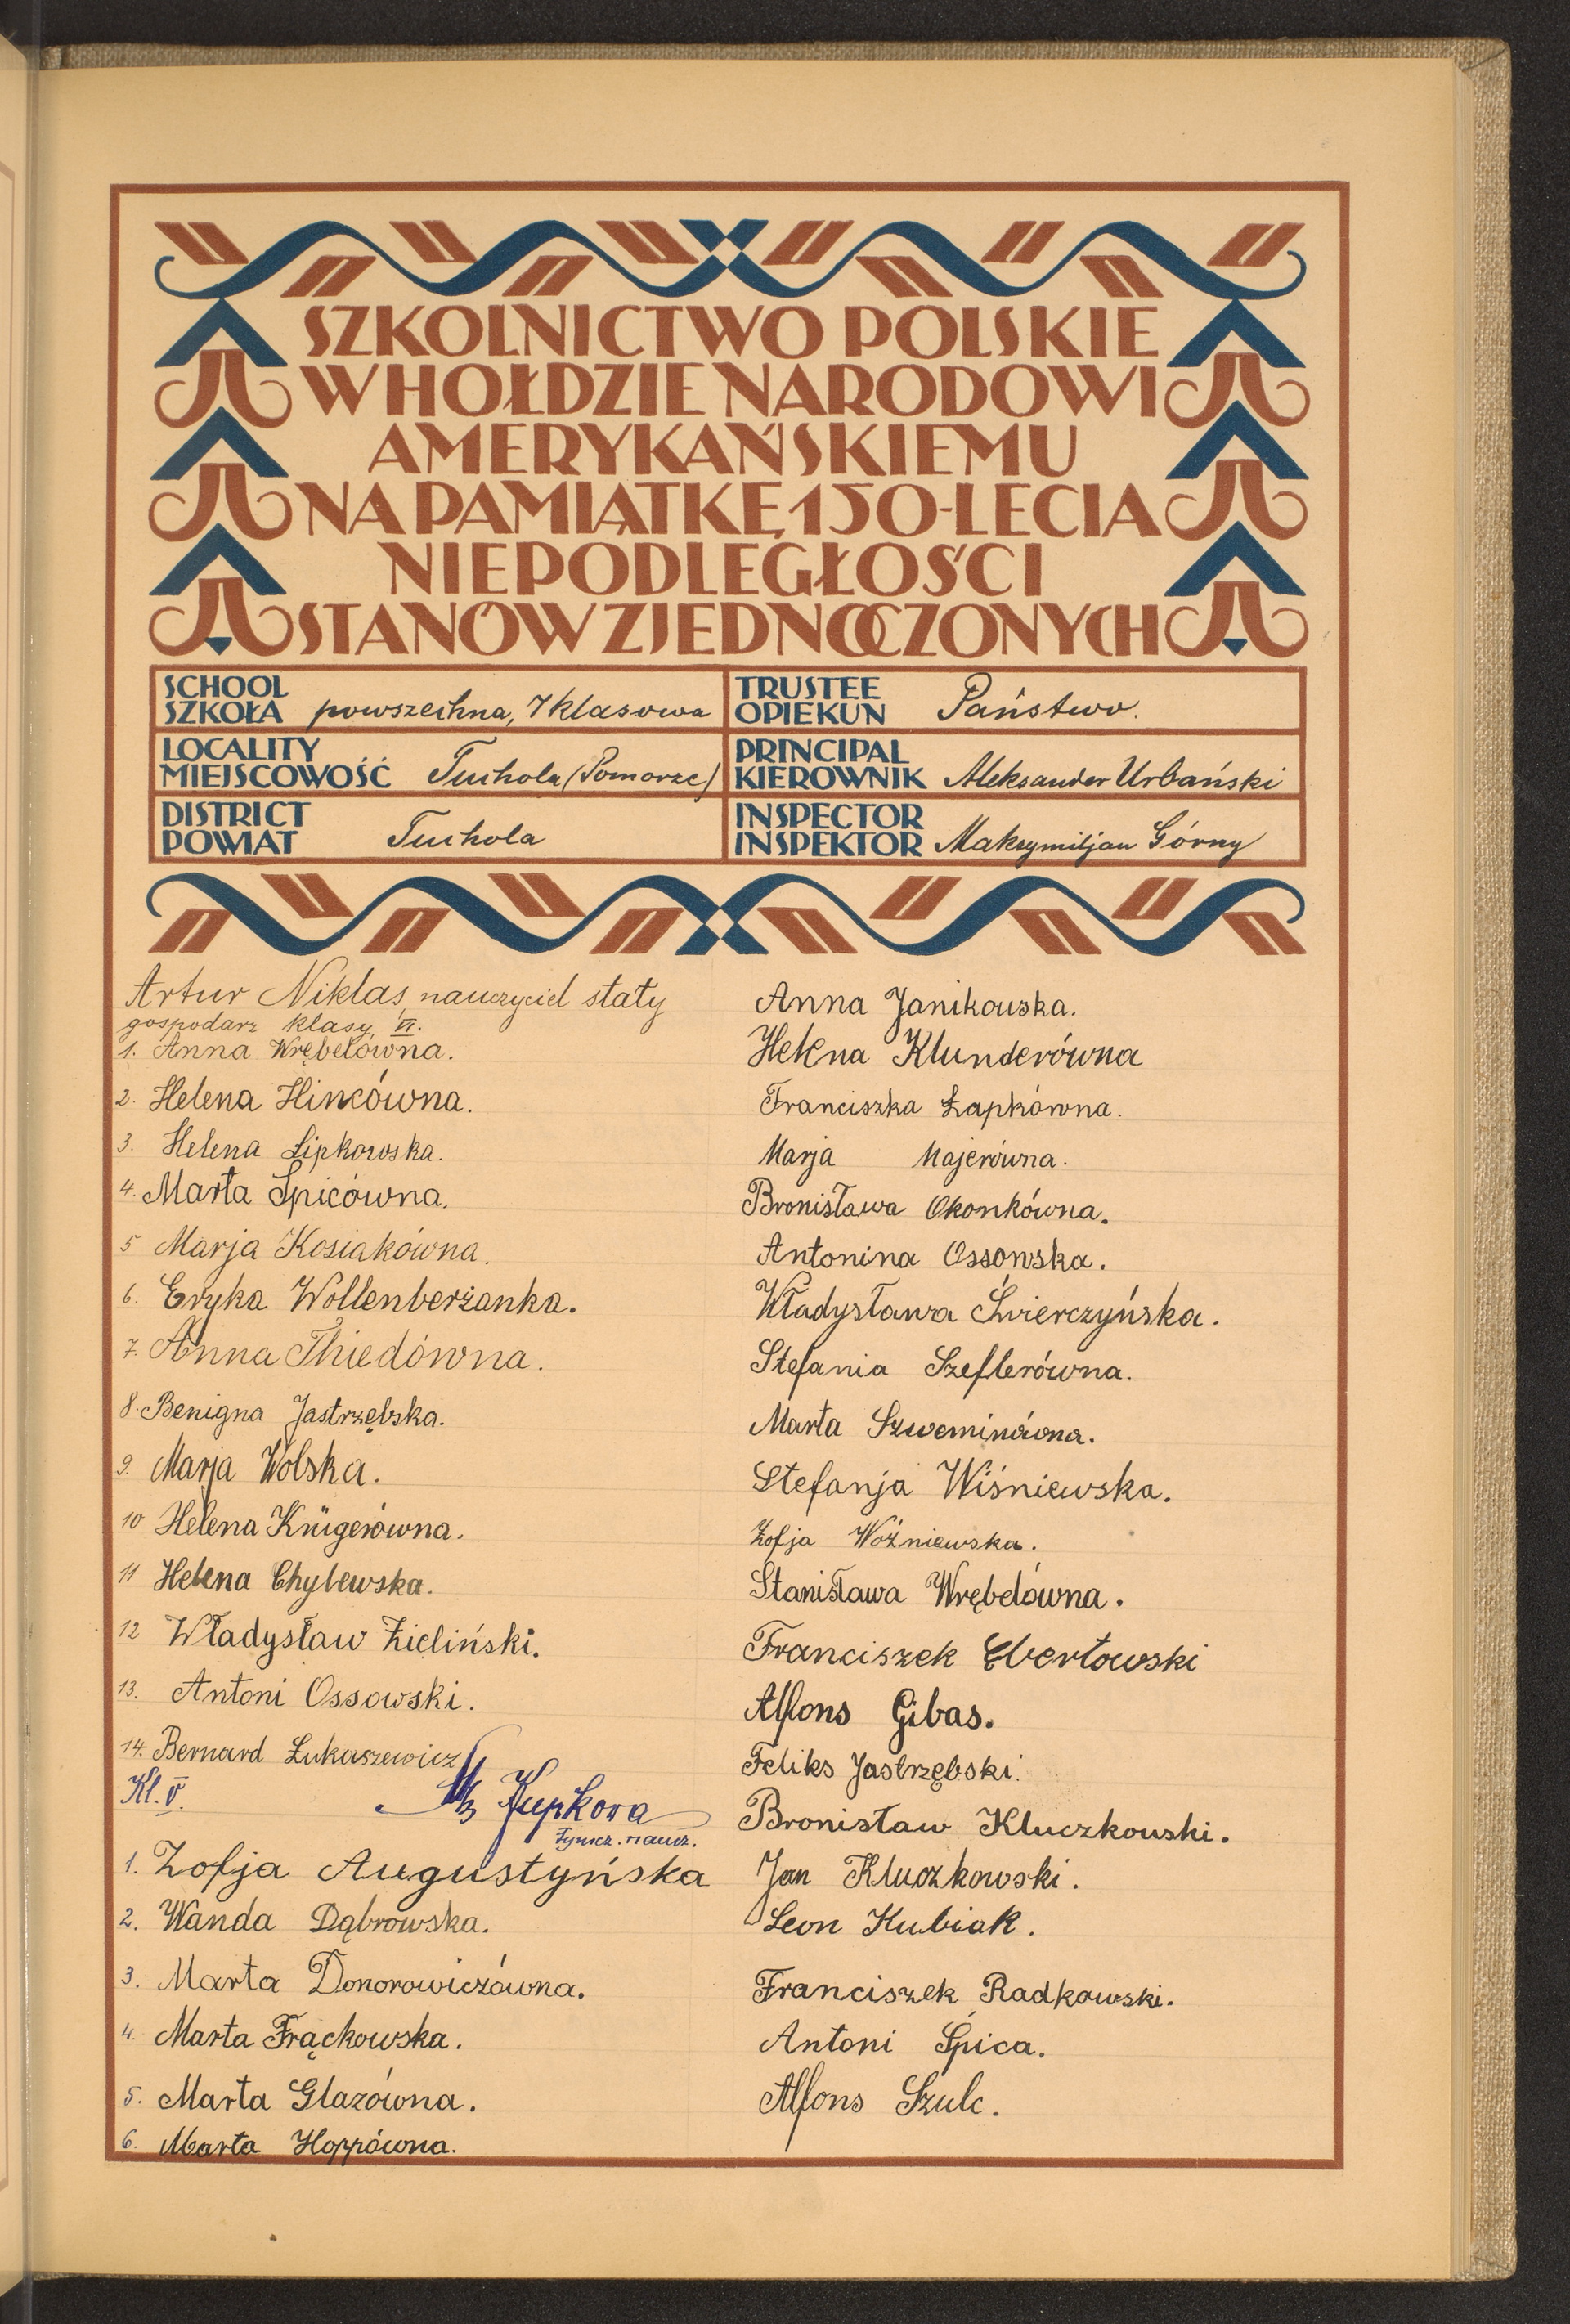 SZKOLNICTWO POLSKIE
W HOŁDZIE NARODOWI
AMERYKAŃSKIEMU
NA PAMIĄTKĘ 150-LECIA
NIEPODLEGŁOŚCI
STANÓW ZJEDNOCZONYCH
SCHOOL
SZKOŁA powszechna, 7 klasowa
TRUSTEE
OPIEKUN Państwo.
LOCALITY
MIEJSCOWOŚĆ Tuchola (Pomorze)
PRINCIPAL
KIEROWNIK Aleksander Urbański
DISTRICT
POWIAT Tuchola
INSPECTOR
INSPEKTOR Maksymiljan Górny
Artur Niklas, nauczyciel stały
gospodarz klasy VI.
1. Anna Wrębelówna.
2. Helena Hincówna.
3. Helena Lipkowska.
4. Marta Spicówna.
5 Marja Kosiakówna.
6. Eryka Wollenberżanka.
7. Anna Thiedówna.
8. Benigna Jastrzębska.
9. Marja Wolska.
10 Helena Krügerówna.
11 Helena Chylewska.
12 Władysław Zieliński.
13. Antoni Ossowski.
14. Bernard Łukaszewicz
Kl. V. Kupkowa
tymcz. naucz.
1. Zofja Augustyńska
2. Wanda Dąbrowska.
3. Marta Donorowiczówna.
4. Marta Frąckowska.
5. Marta Glazówna.
6. Marta Hoppówna.
Anna Janikowska.
Helena Klunderówna
Franciszka Łapkówna.
Marja Majerówna.
Bronisława Okonkówna.
Antonina Ossowska.
Władysława Świerczyńska.
Stefania Szeflerówna.
Marta Szweminówna.
Stefanja Wiśniewska.
Zofja Woźniewska.
Stanisława Wrębelówna.
Franciszek Ebertowski
Alfons Gibas.
Feliks Jastrzębski.
Bronisław Kluczkowski.
Jan Kluczkowski.
Leon Kubiak.
Franciszek Radkowski.
Antoni Spica.
Alfons Szulc.